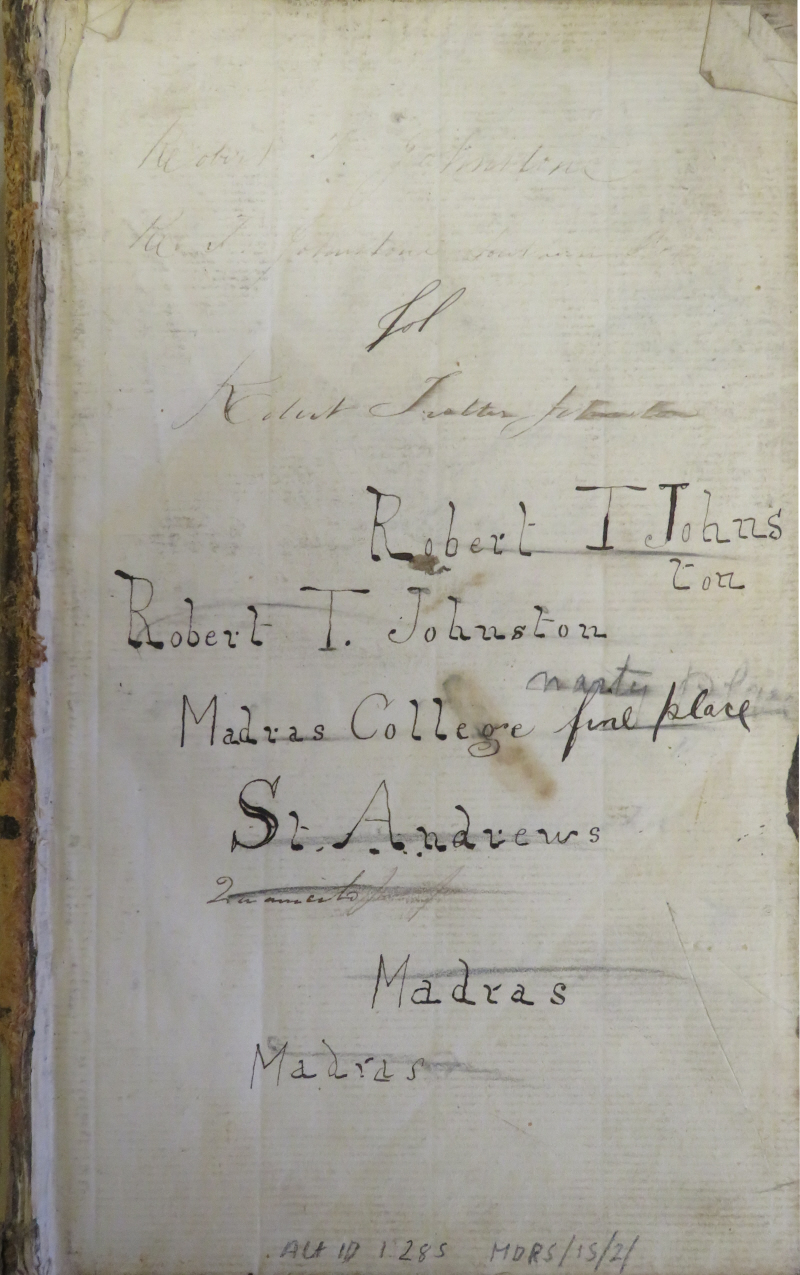 Robert T. Johnston
R. T. Johnstone
fol
Robert Trotter Johnston
Robert T Johns
ton
Robert T. Johnston
nasty place
Madras College fine place
St. Andrews
Madras
Madras
Alt ID 1285 MDRS/15/2/